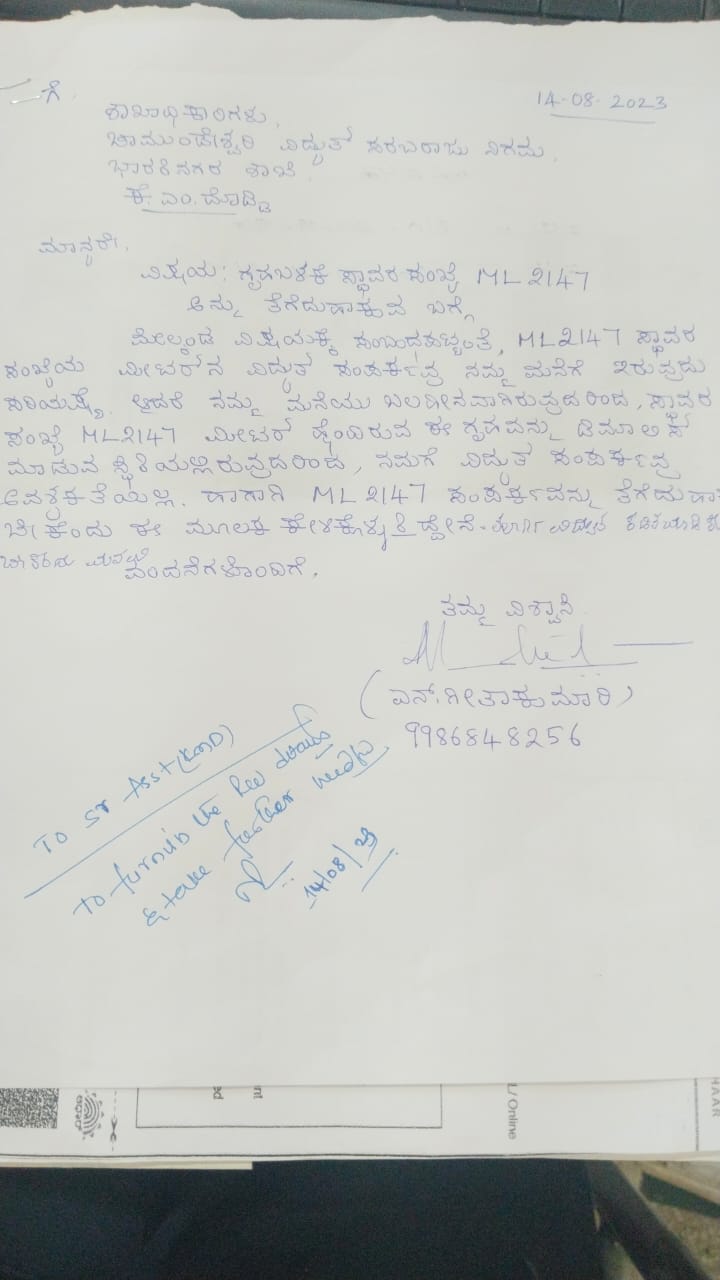 ಗೆ.
14-08-2023
ಶಾಖಾಧಿಕಾರಿಗಳು,
ಚಾಮುಂಡೇಶ್ವರಿ ವಿದ್ಯುತ್ ಸರಬರಾಜು ನಿಗಮ.
ಭಾರತಿನಗರ ಶಾಖೆ.
ಕೆ. ಎಂ. ದೊಡ್ಡಿ
ಮಾನ್ಯರೇ,
ವಿಷಯ: ಗೃಹಬಳಕೆ ಸ್ಥಾವರ ಸಂಖ್ಯೆ ML 2147
ಅನ್ನು ತೆಗೆದುಹಾಕುವ ಬಗ್ಗೆ
ಮೇಲ್ಕಂಡ ವಿಷಯಕ್ಕೆ ಸಂಬಂಧಪಟ್ಟಂತೆ, ML 2147 ಸ್ಥಾವರ
ಸಂಖ್ಯೆಯ ಮೀಟರ್‌ನ ವಿದ್ಯುತ್ ಸಂಪರ್ಕವು ನಮ್ಮ ಮನೆಗೆ ಇರುವುದು
ಸರಿಯಷ್ಟೆ. ಆದರೆ ನಮ್ಮ ಮನೆಯು ಬಲಹೀನವಾಗಿರುವುದರಿಂದ, ಸ್ಥಾವರ
ಸಂಖ್ಯೆ ML2147 ಮೀಟರ್ ಹೊಂದಿರುವ ಈ ಗೃಹವನ್ನು ಡಿಮಾಲಿಸ್
ಮಾಡುವ ಸ್ಥಿತಿಯಲ್ಲಿರುವುದರಿಂದ, ನಮಗೆ ವಿದ್ಯುತ್ ಸಂಪರ್ಕವು
ಅವಶ್ಯಕತೆಯಿಲ್ಲ. ಹಾಗಾಗಿ ML 2147 ಸಂಪರ್ಕವನ್ನು ತೆಗೆದುಹಾ
ಬೇಕೆಂದು ಈ ಮೂಲಕ ಕೇಳಿಕೊಳ್ಳುತ್ತಿದ್ದೇನೆ. ವಿದ್ಯುತ್
ವಂದನೆಗಳೊಂದಿಗೆ.
ತಮ್ಮ ವಿಶ್ವಾಸಿ
(ಎನ್. ಗೀತಾಕುಮಾರಿ)
9986848256
To Sr Asst (KMD)
To furnish the Rev details
& take further needful
14/08/23
nt
ed
L/ Online
HAAR